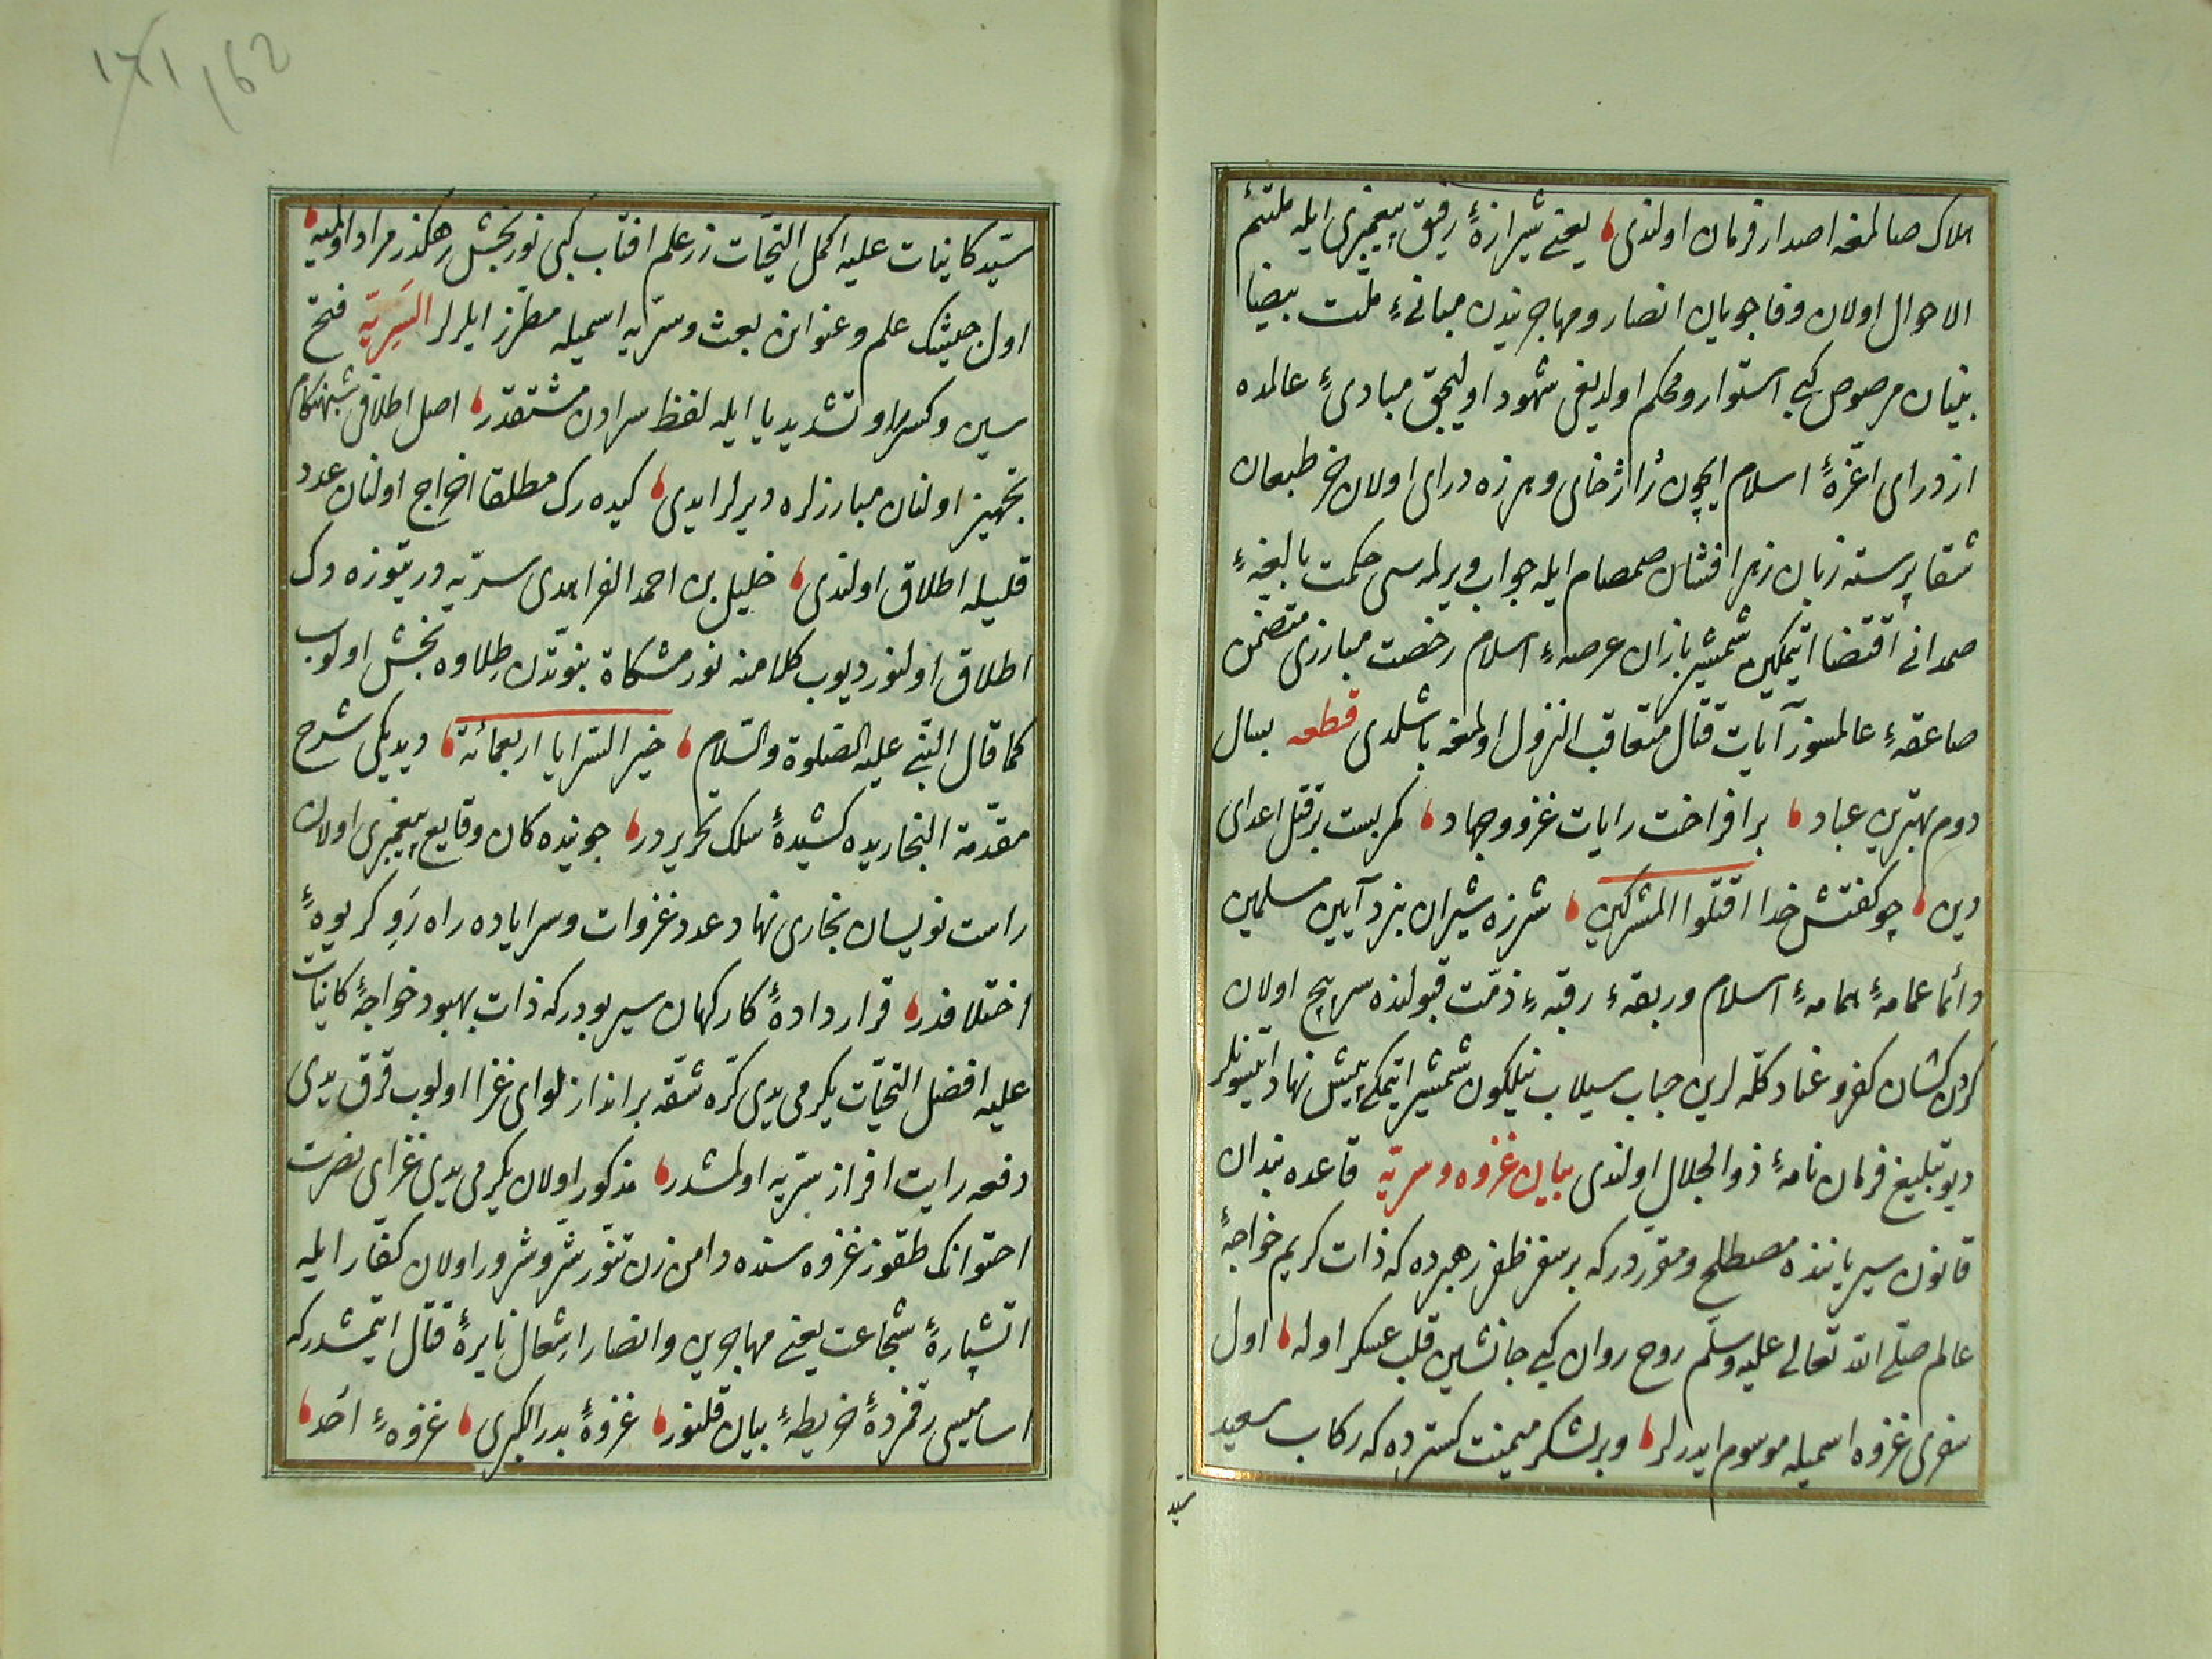 هلاك صالمغه اصدار فرمان اولندى، يعنى شيرازهٔ رفيق پيغمبرى ايله ملتئم
الاحوال اولان وفاجويان انصار ومهاجريندن مبانئ ملّت بيضا
بنيان مرصوص كبى استوار ومحكم اولديغى شهود اوليجق مبادئ عالمده
از دراى اعزّهٔ اسلام ايچون ژاژخاى وهرزه دراى اولان خر طبعان
شقا پرسته زبان زهر افشان صمصام ايله جواب ويرلمه سى حكمت بالغهٔ
صمدانى اقتضا اتمكين شمشير بازان عرصهٔ اسلام رخصت مبارزى متضمن
صاعقهٔ عالمسوز آيات قتال متعاقب النزول اولمغه باشلدى قطعه بسال
دوم بهترين عباد، برافراخت رايات غزو وجهاد، كمر بست بر قتل اعداى
دين، چو كفتش خدا اقتلوا المشركين، شرزه شيران نبرد آيين مسلمين
دائما عمامهٔ همامهٔ اسلام وربقهٔ رقبهٔ ذمّت قبولنده سرپيچ اولان
كردن كشان كفر وعناد كلّه لرين حباب سيلاب نيلكون شمشير اتمكى پيش نهاد ايتسونلر
ديو تبليغ فرمان نامهٔ ذو الجلال اولندى بيان غزوه وسريّه قاعده بندان
قانون سير ياننده مصطلح ومقرّر دركه بر سفر ظفر رهبرده كه ذات كريم خواجهٔ
عالم صلّى الله تعالى عليه وسلّم روح روان كبى جانشين قلب عسكر اوله، اول
سفرى غزوه اسميله موسوم ايدرلر، وبر لشكر ميمنت كستر ده كه ركاب سعيد
سيد
١٦١ 162
سيّد كاينات عليه اكمل التحيّات زرعلم افتاب كبى نور بخش رهكذر مراد اولميه،
اول جيشك علم وعنوانن بعث وسرّيه اسميله مطرّز ايلرلر السَرِيّه فتح
سين وكسر را وتشديد يا ايله لفظ سرادن مشتقدر، اصل اطلاقى شبهنكام
تجهيز اولنان مبارزلره ديرلر ايدى، كيده رك مطلقا اخراج اولنان عدد
قليله اطلاق اولندى، خليل بن احمد الفراهدى سريّه درتيوزه دك
اطلاق اولنور ديوب كلامنه نور مشكاة نبوّتدن طلاوه بخش اولوب
كما قال النبى عليه الصّلوة والسّلام، خير السّرايا اربعمائة، ديديكى شرح
مقدّمة البخاريده كشيدهٔ سلك تحريردر، جوينده كان وقايع پيغمبرى اولان
راست نويسان بخارى نهاد عدد غزوات وسراياده راه رَوِ كريوهٔ
اختلافدر، قرار دادهٔ كاركهان سير بودركه ذات بهبود خواجهٔ كاينات
عليه افضل التحيّات يكرمى يدى كرّه شقّه برانداز لواى غزا اولوب قرق يدى
دفعه رايت افراز سريّه اولمشدر، مذكور اولان يكرمى يدى غزاى نصرت
احتوانك طقوز غزوه سنده دامن زن تنّور شرّ وشرور اولان كفّار ايله
اتشپارهٔ شجاعت يعنى مهاجرين وانصار اشعال نايرهٔ قتال اتمشدركه
اساميسى رقمزدهٔ خريطهٔ بيان قلنور، غزوهٔ بدر الكبرى، غزوهٔ اُحد،